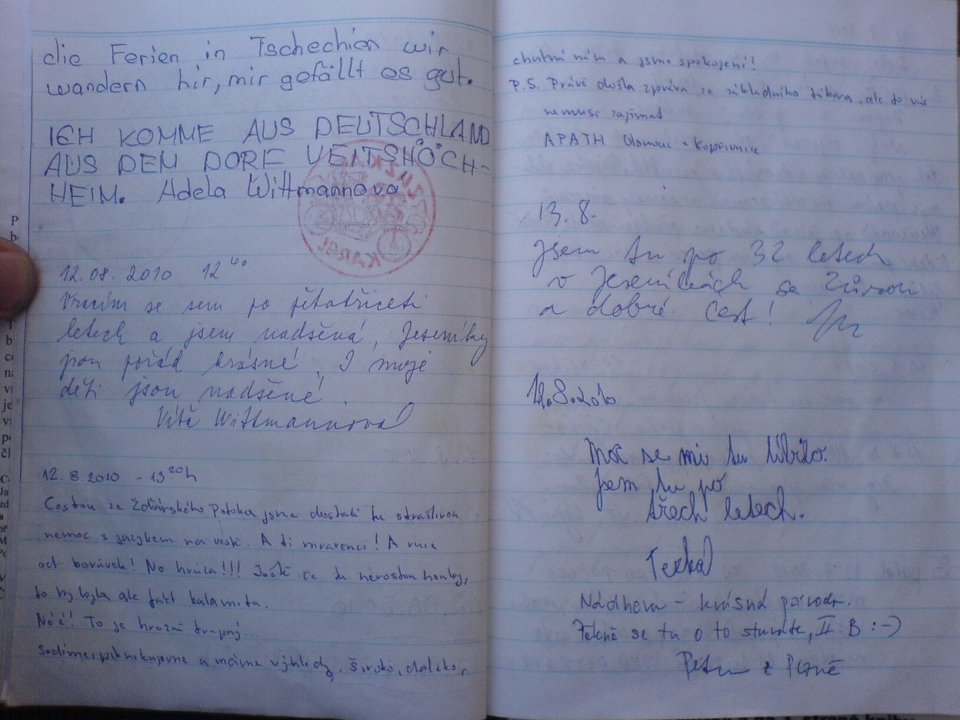 die Ferien in Tschechien wir
wandern hir, mir gefällt es gut.
ICH KOMME AUS DEUTSCHLAND
AUS DEM DORF VEITSHÖCH-
HEIM. Adela Wittmannova
12.08.2010 12⁴⁰
Vracím se sem po pětatřiceti
letech a jsem nadšená, Jeseníky
jsou pořád krásné. I moje
děti jsou nadšené!
Wittmannová
12.8.2010 - 13²⁰h
Cestou ze Žďárského potoka jsme dostali tu strašlivou
nemoc s jazykem na vrok. A ti mravenci! A ruce
od borůvek! No hrůza!!! Ještě že tu nerostou houby,
to by byla ale fakt kalamita.
Néé! To je hrozně trapný...
a máme výhledy, široko, daleko,
chutná nám a jsme spokojeni!
P.S. Právě došla zpráva ze základního tábora, ale to vás
nemusí zajímat
APATH Olomouc + Kopřivnice
13.8.
Jsem tu po 32 letech
v Jeseníkách se
a dobré cest!
12.8.2010
Moc se mi tu líbilo.
Jsem tu po
třech letech.
Nádhera - krásná příroda.
Pěkně se tu o to staráte, II. B :-)
z Plzně
KAREL